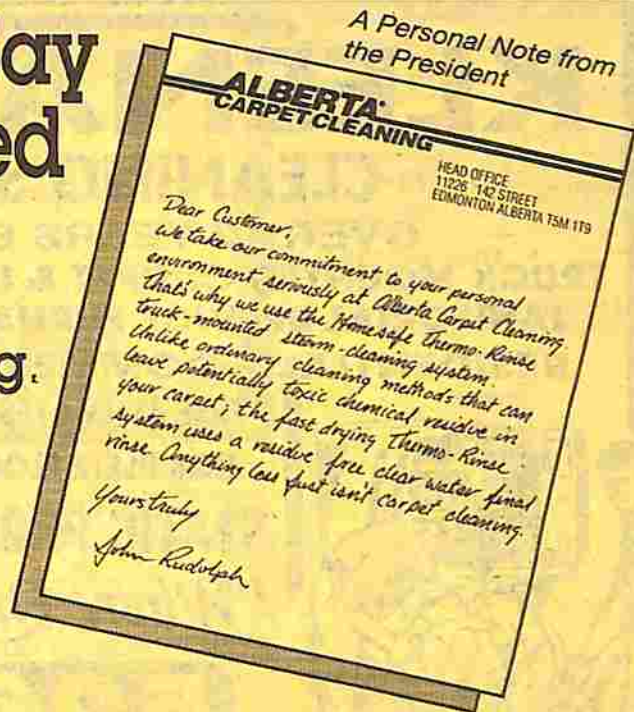 ay
ed
g.
A Personal Note from
the President
ALBERTA
CARPET CLEANING
HEAD OFFICE
11226 142 STREET
EDMONTON ALBERTA T5M 1T9
Dear Customer,
We take our commitment to your personal
environment seriously at Alberta Carpet Cleaning.
That's why we use the Homesafe Thermo-Rinse
truck-mounted steam-cleaning system.
Unlike ordinary cleaning methods that can
leave potentially toxic chemical residue in
your carpet, the fast drying Thermo-Rinse
system uses a residue free clear water final
rinse. Anything less just isn't carpet cleaning.
Yours truly
John Rudolph